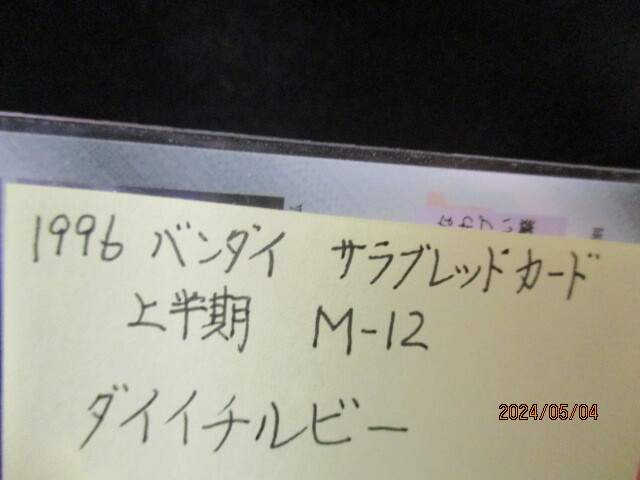 1996 バンダイ サラブレッドカード
上半期 M-12
ダイイチルビー
2024/05/04